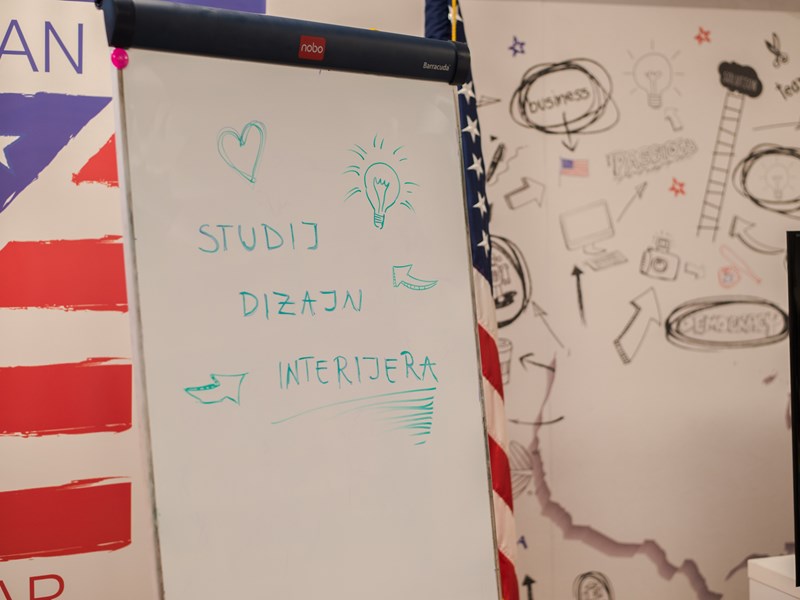 AN
nobo
Barracuda
STUDIJ
DIZAJN
INTERIJERA
business
SOLUTION
DEMOCRACY